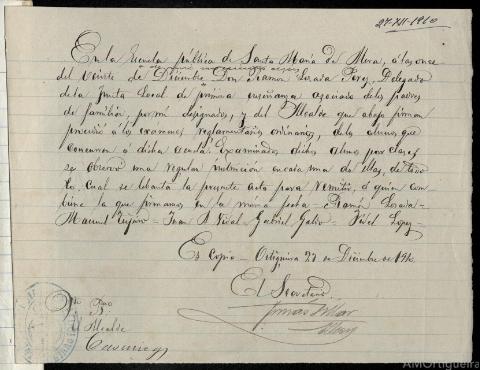 27-XII-1910
En la Escuela pública de Santa María de Mera, á las once
del veinte de Diciembre Don Ramon Losada Delegado
de la Junta Local de primera enseñanza asociado de los padres
de familia, por mí designados, y del Alcalde que abajo firman
procedió á los exámenes reglamentarios ordinarios, de los alumnos que
concurren á dicha escuela. Examinados dichos alumnos por clases
se observó una regular instrucción en cada una de ellas, de todo
lo cual se levanta la presente acta para remitir á quien con
viene la que firmamos en la misma fecha - Ramón Losada -
Manuel - Juan A. Vidal - Gabriel - Fidel Lopez -
Es copia - Ortigueira 27 de Diciembre de 1910
El Secretario
Vto Bno
El Alcalde
AMOrtigueira